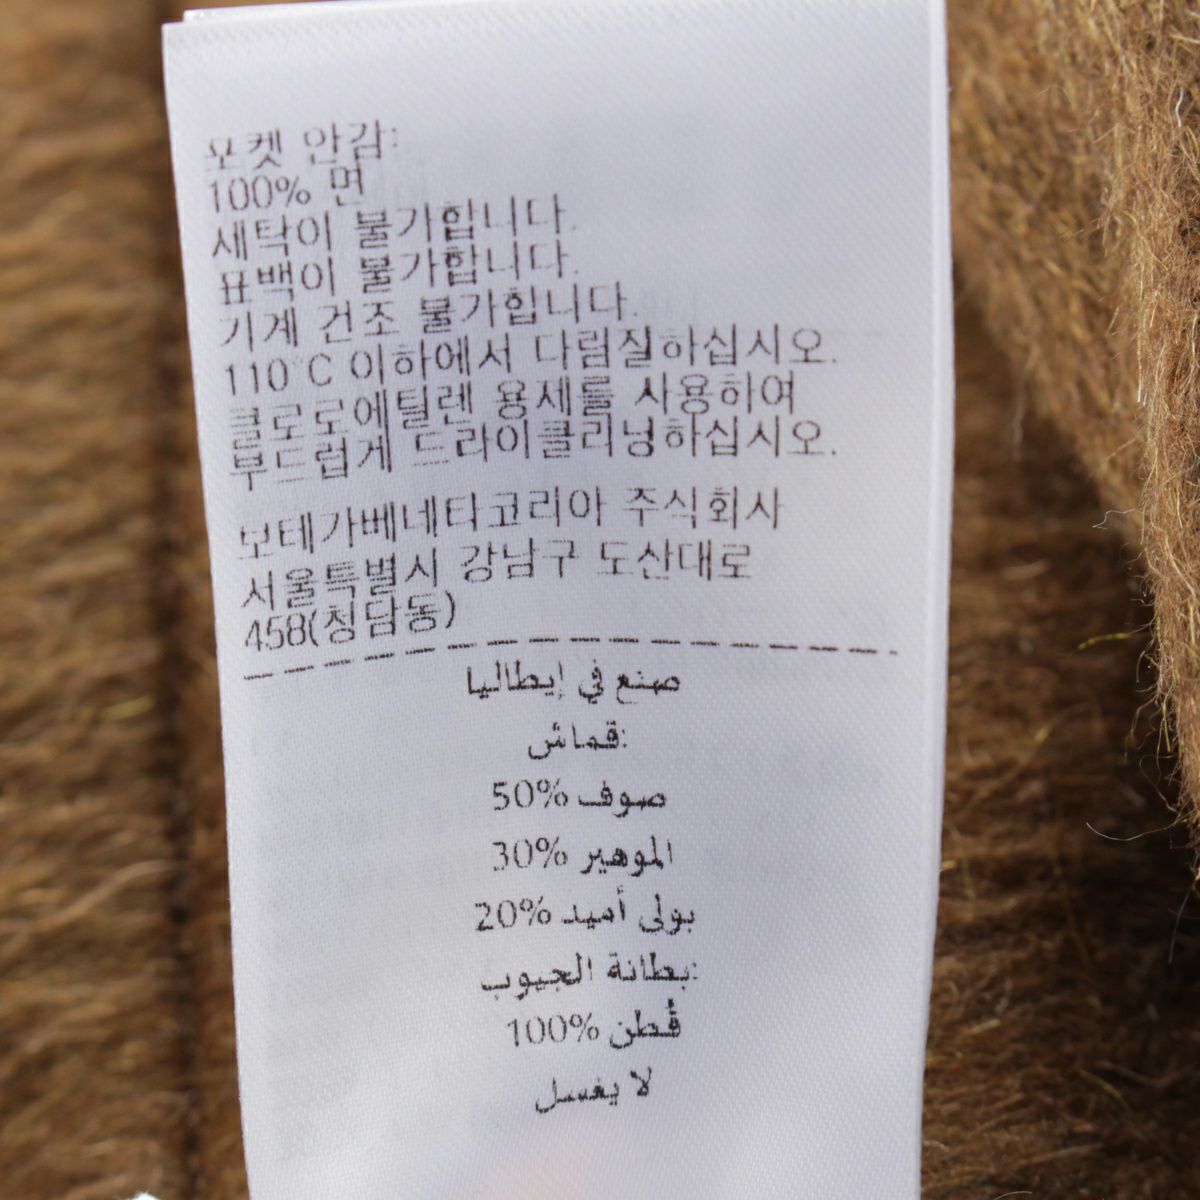 포켓 안감:
100% 면
세탁이 불가합니다.
표백이 불가합니다.
기계 건조 불가합니다.
110°C 이하에서 다림질하십시오.
클로로에틸렌 용제를 사용하여
부드럽게 드라이클리닝하십시오.
보테가베네타코리아 주식회사
서울특별시 강남구 도산대로
458(청담동)
صنع في إيطاليا
قماش:
صوف %50
الموهير %30
بولى أميد %20
بطانة الجيوب:
قطن %100
لا يغسل